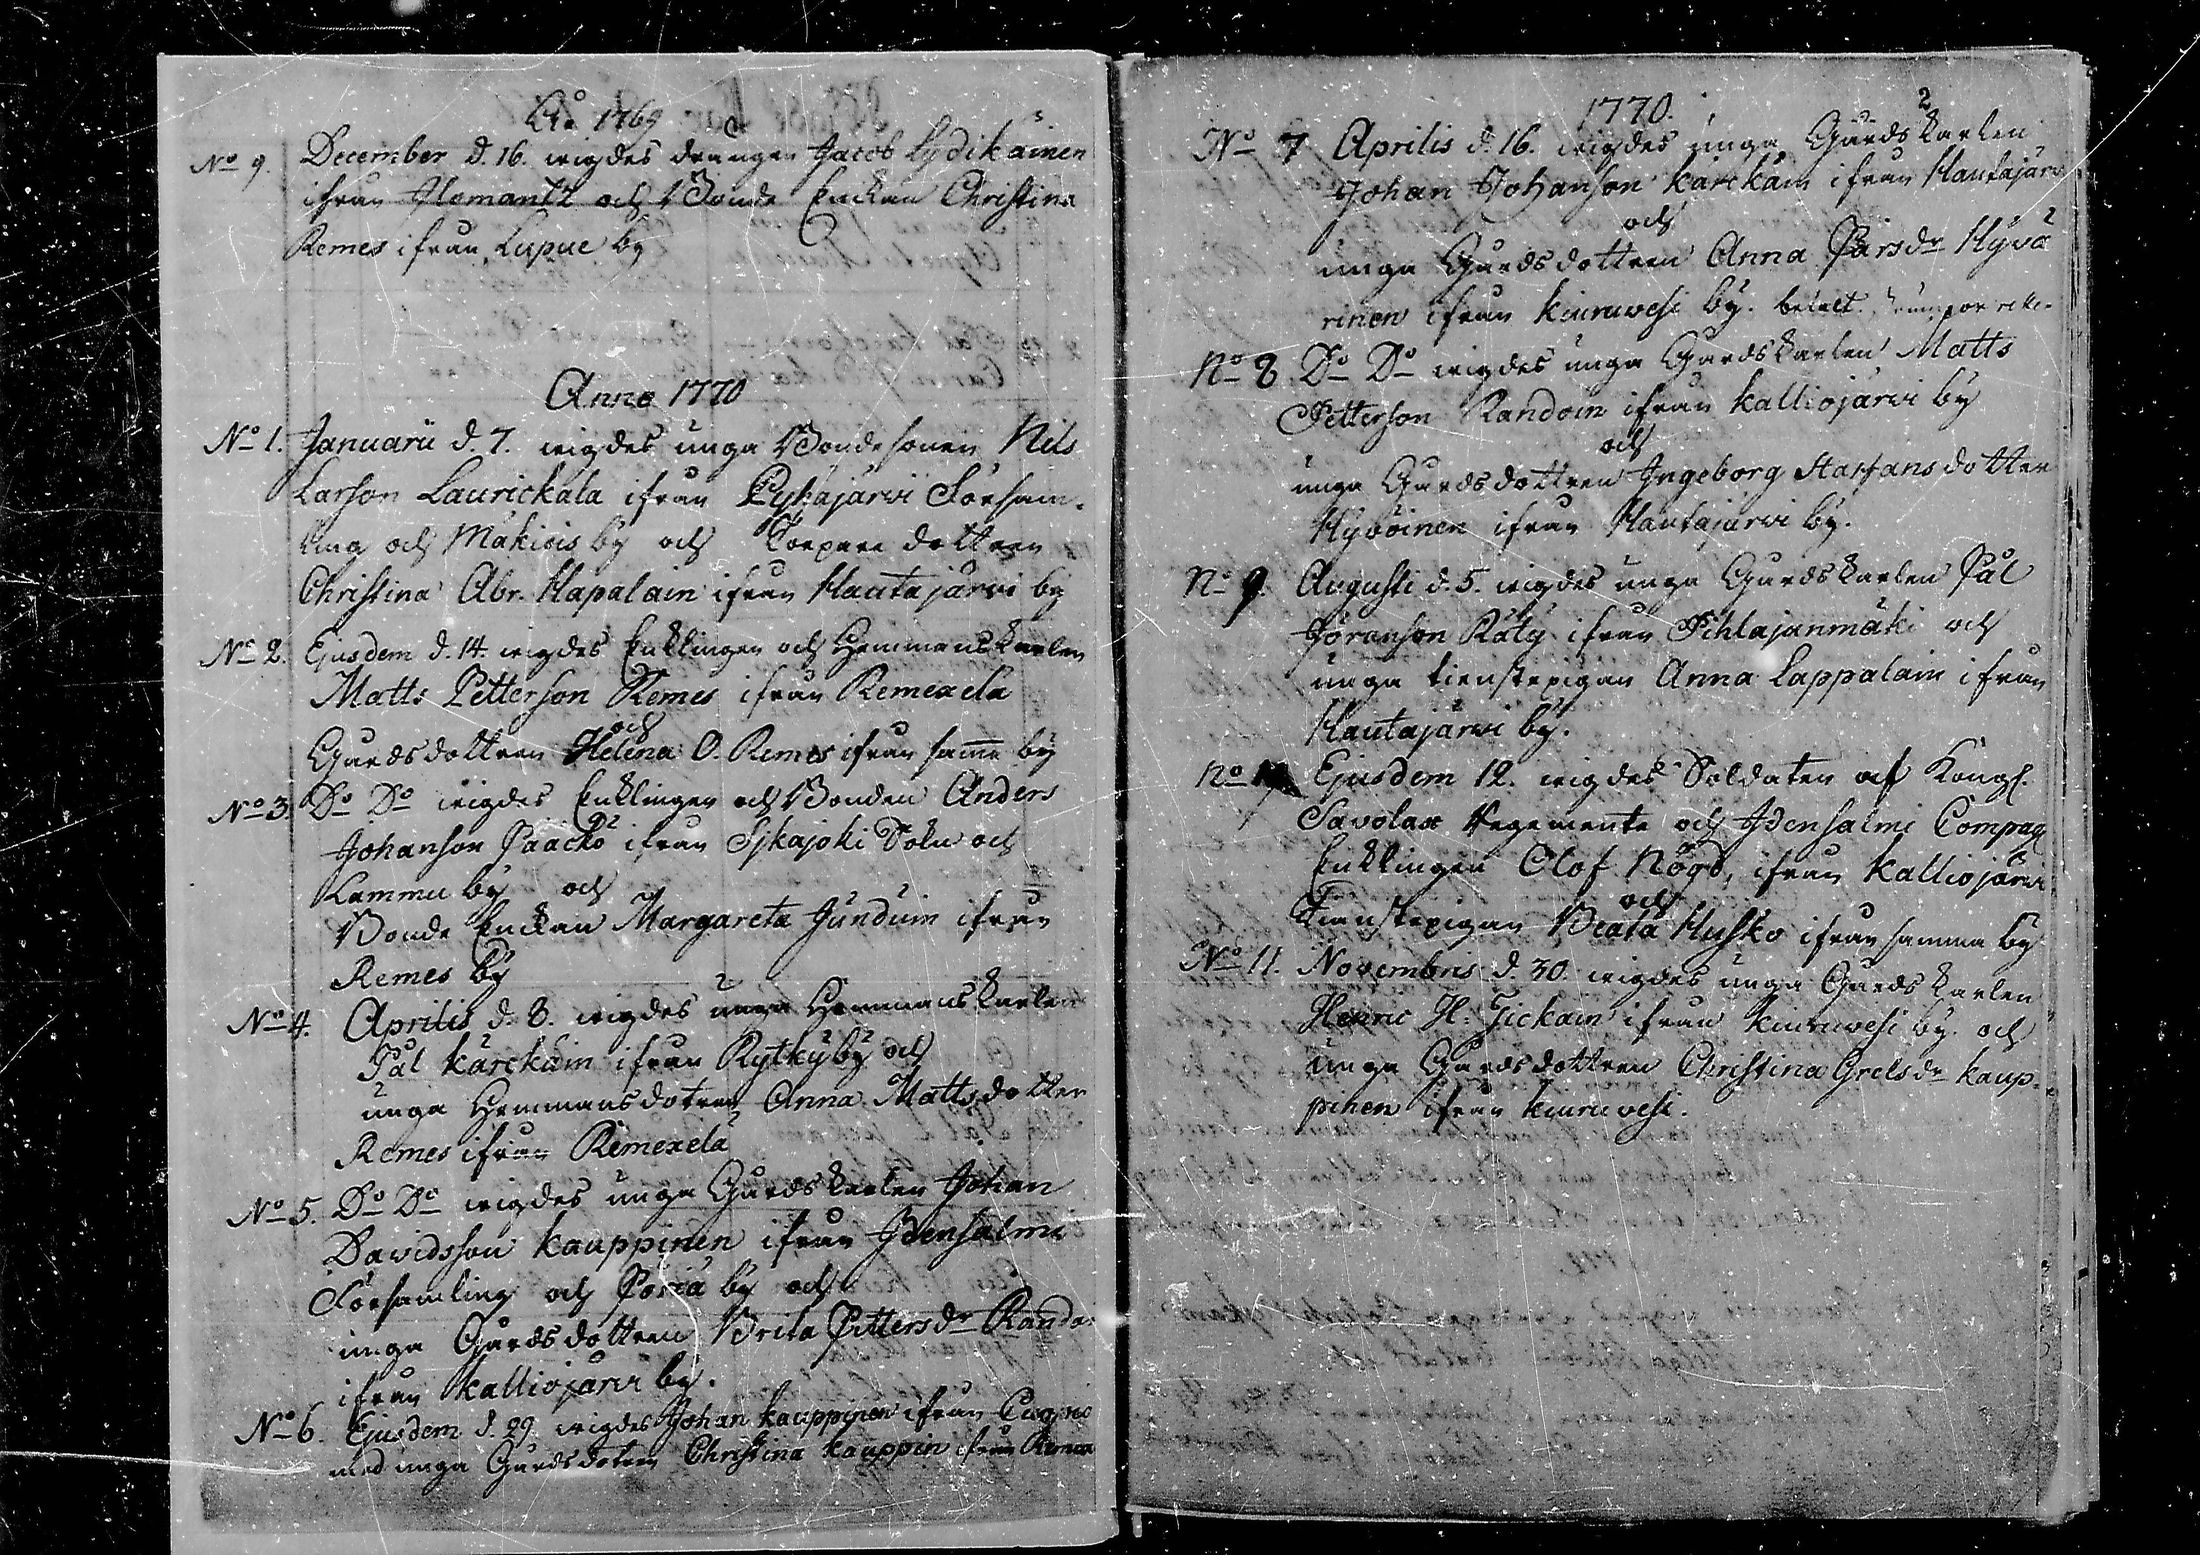 Ao 1769
No 9. December d. 16. wigdes drängen Jacob Lydikäinen
ifrån Ilomantz och Bonde Enckan Christina
Remes ifrån Lapue by
Anno 1770
No 1. Januarii d. 7. wigdes unga Bondesonen Nils
Larson Laurickala ifrån Pyhäjärwi Försam-
ling och Mäkiois by och Torpare dottren
Christina Abr. Hapalain ifrån Hautajärwi by
No 2. Ejusdem d. 14. wigdes Enklingen och Hemmans Karlen
Matts Petterson Remes ifrån Remexelä
och
Gårdsdottren Helena O. Remes ifrån samma by
No 3. Do Do wigdes Enklingen och Bonden Anders
Johanson Paacko ifrån Sjkajoki Sokn och
Lammu by och
Bonde Enckan Margareta Junduin ifrån
Remes by
No 4. Aprilis d. 8. wigdes unga Hemmans Karlen
Pål Kärckäin ifrån Rytky by och
unga Hemmansdotren Anna Mattsdotter
Remes ifrån Remexelä
No 5. Do Do wigdes unga Gårdskarlen Johan
Davidsson Kauppinen ifrån Idensalmi
Församling och Poria by och
unga Gårdsdottren Brita Pittersdr Rando:
ifrån Kalliojärwi by.
No 6. Ejusdem d. 29. wigdes Johan Kauppinen ifrån Cuopio
med unga Gårdsdotren Christina Kauppin ifrån
1770. 2
No 7 Aprilis d. 16. wigdes unga Gårds Karlen
Johan Johanson Kärckäin ifrån Hautajärwi
och
unga Gårdsdottren Anna Pärsdr Hyvä
rinen ifrån Kiuruwesi by. betalt.
No 8 Do Do wigdes unga Gårdskarlen Matts
Petterson Randoin ifrån Kalliojärwi by
och
unga Gårdsdottren Ingeborg Staffansdotter
Hyvöinen ifrån Hautajärwi by.
No 9. Augusti d. 5. wigdes unga Gårdskarlen Pål
Jöranson Räty ifrån Pihlajanmäki och
unga tienstepigan Anna Lappalain ifrån
Hautajärwi by.
No Ejusdem 12. wigdes Soldaten af Kongl.
Savolax Regemente och Idensalmi Compag
Enklingen Olof Nögd, ifrån Kalliojärwi
och
Tienstepigan Beata Husko ifrån samma by
No 11. Novembris d. 30. wigdes unga Gårds Karlen
Henric H: Tickain ifrån Kiuruwesi by. och
unga Gårdsdottren Christina Grelsdr Kaup-
pinen ifrån Kiuruwesi.